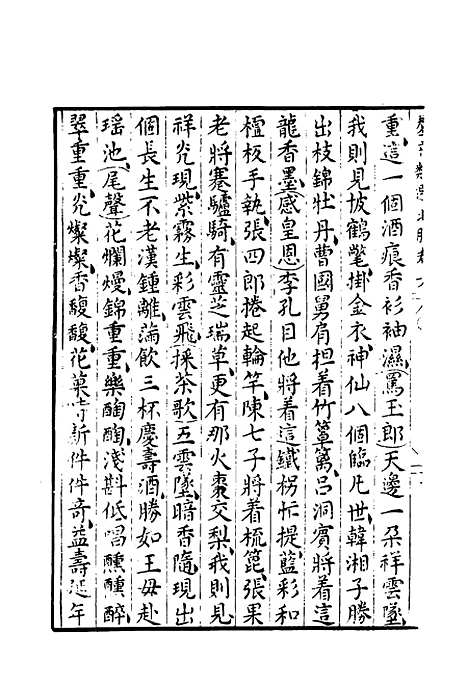 重這一個酒痕香衫袖濕罵玉郎天邊一朵祥雲墜
我則見披鶴氅掛金衣神仙八個臨凡世韓湘子勝
出枝錦牡丹曹國舅肩担着竹罩籬呂洞賓將着這
龍香墨感皇恩李孔目他將着這鐵拐忙提藍彩和
檀板手執張四郎捲起輪竿陳七子將着梳箆張果
老將蹇驢騎有靈芝瑞草更有那火棗交梨我則見
祥光現紫霧生彩雲飛採茶歌五雲墜暗香隨現出
個長生不老漢鍾離滿飲三杯慶壽酒勝如王毋赴
瑶池尾聲花爛熳錦重重樂醄醄淺斟低唱醺醺醉
翠重重光燦燦香馥馥花菓時新件件奇益壽延年